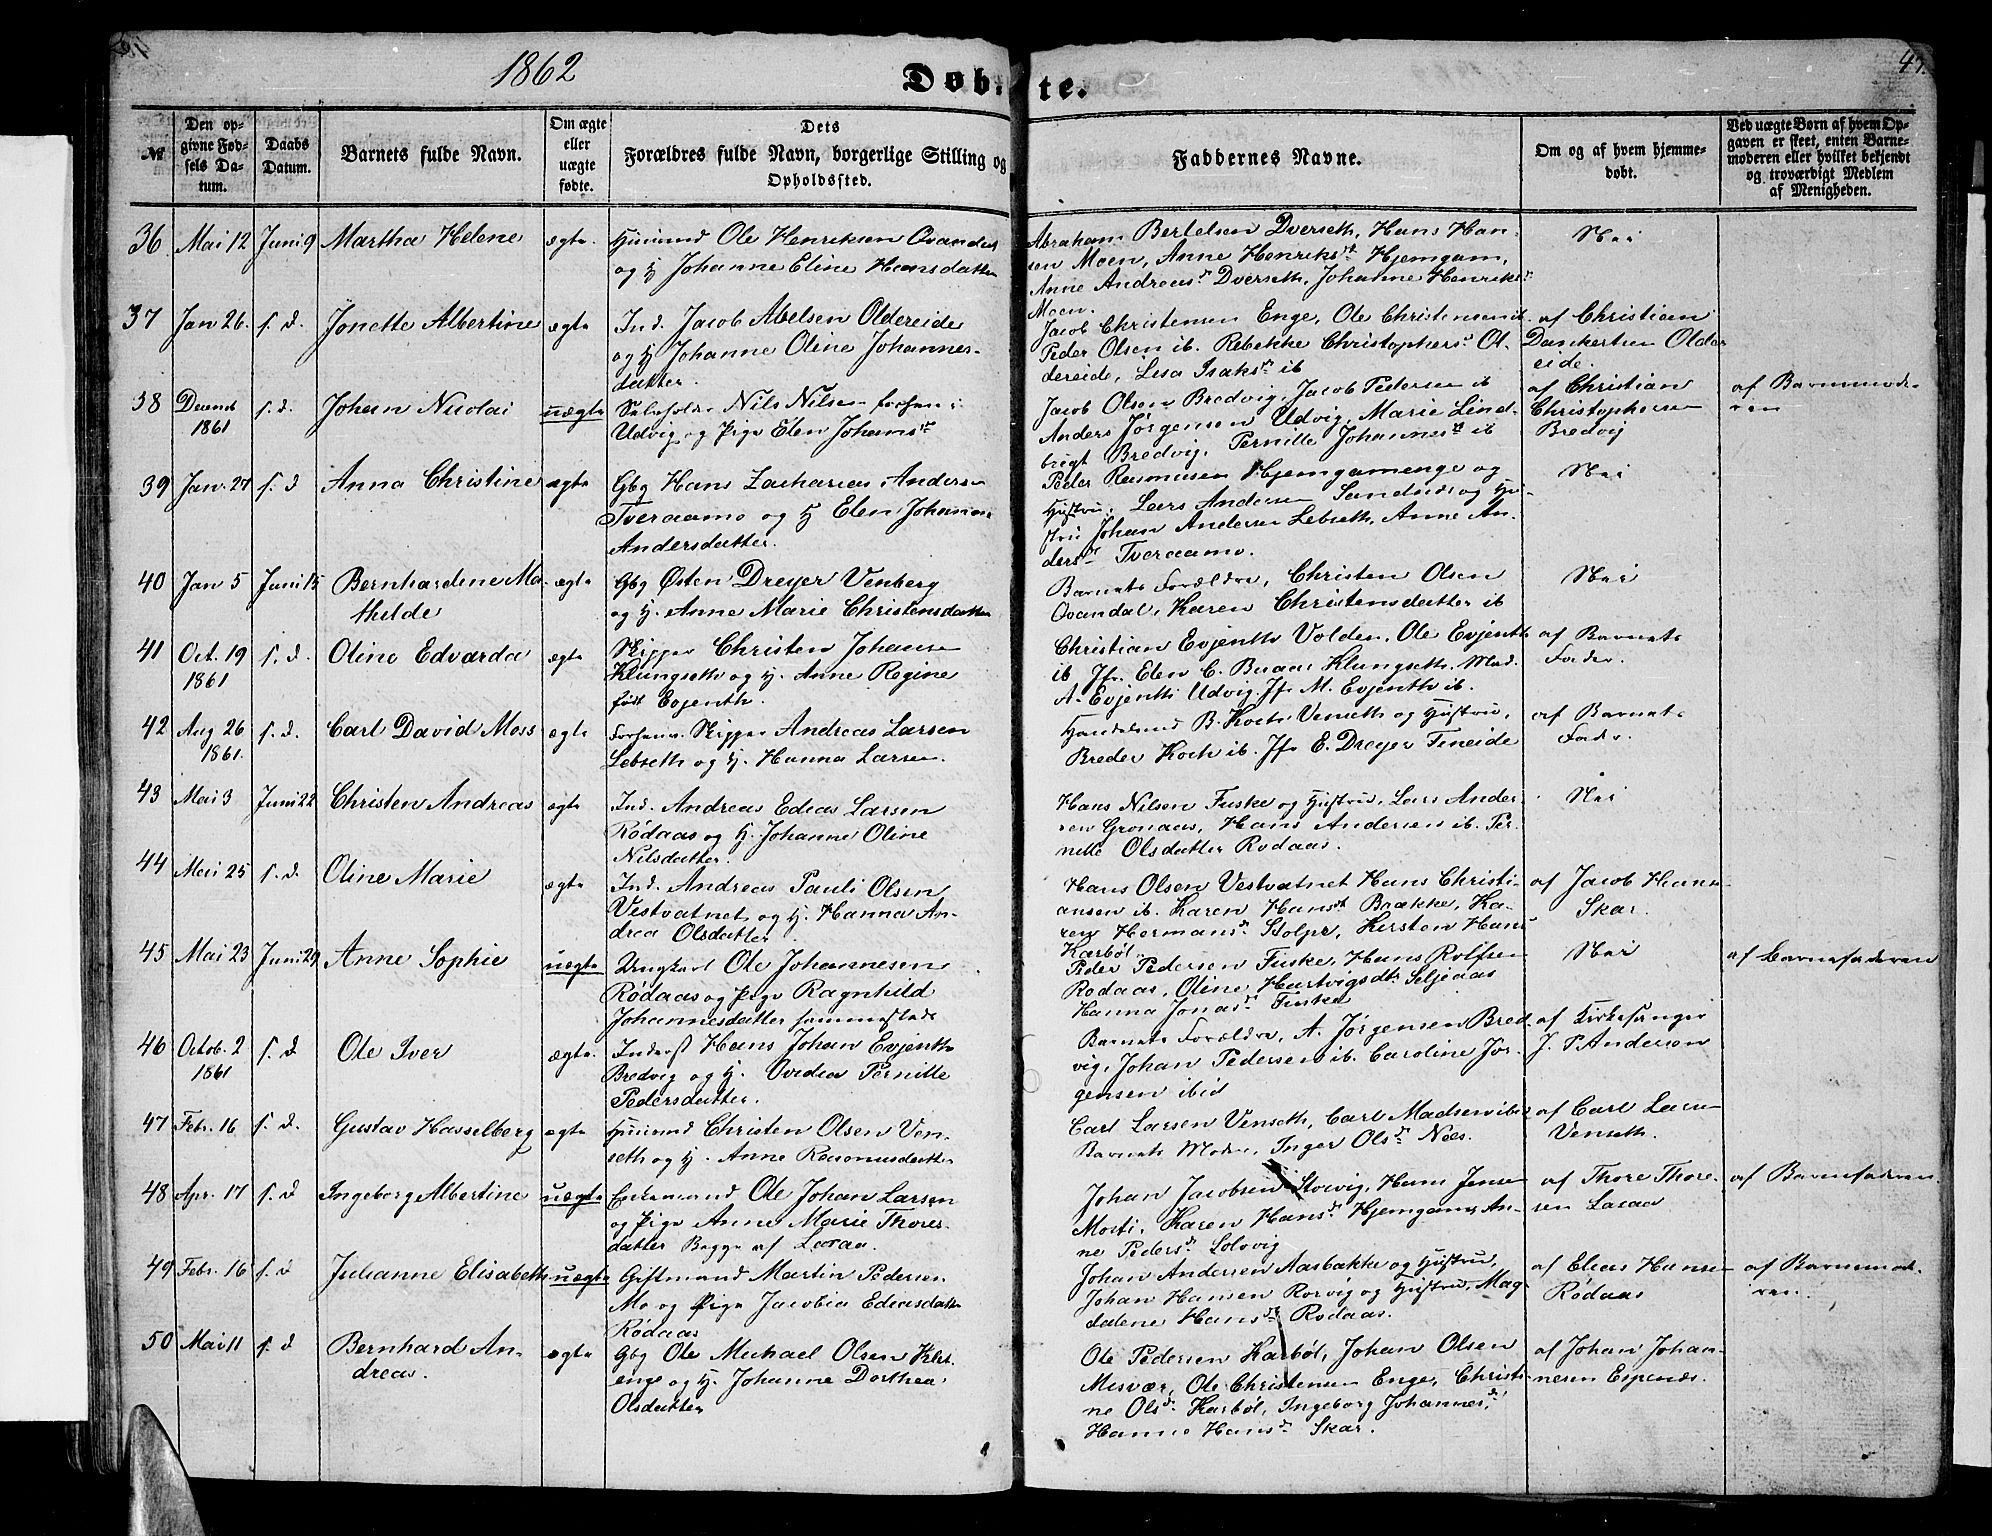 1862
Døbte.
47.
№
Den opgivne Fødsels Datum.
Daabs Datum.
Barnets fulde Navn.
Om ægte eller uægte fødte.
Dets Forældres fulde Navn, borgerlige Stilling og Opholdssted.
Faddernes Navne.
Om og af hvem hjemmedøbt.
Ved uægte Børn af hvem Opgaven er skeet, enten Barnemoderen eller hvilket bekjendt og troværdigt Medlem af Menigheden.
36 Mai 12 Juni 9 Martha Helene ægte. Huusmd Ole Henriksen Qvandal
og H Johanne Eline Hansdatter
Abraham Bertelsen Dverseth, Hans Han-
sen Moen, Anne Henriksdr Hjemgam,
Anne Andreasdr Dverseth, Johanne Henriksdr
Moen.
Nei
37 Jan 26. s. d. Jonette Albertine ægte Ind. Jacob Abelsen Oldereide
og H Johanne Oline Johannes-
datter.
Jacob Christensen Enge, Ole Christensen ib.
Peder Olsen ib. Rebekke Christophersdr Ol-
dereide, Lisa Isaksdr ib
af Christian
Dankertsen Older
eide.
38 Decemb 1861 s. d. Johan Nicolai uægte Selveier Nils Nilsen forhen i
Udvig og Pige Elen Johansdr
Jacob Olsen Bredvig, Jacob Pedersen ib
Anders Jørgensen Udvig, Marie Lind-
bregt Bredvig, Pernille Johannesdr ib
af Christian
Christophersen
Bredvig
af Barnemode-
ren
39 Jan. 27 s. d Anna Christine ægte Gbg Hans Zacharias Andersen
Tveraamo og H Elen Johanna
Andersdatter.
Peder Rasmussen Hjemgamenge og
Hustru, Lars Andersen Sandnes og Hu-
stru Johan Andersen Lebseth, Anne An-
dersdr Tveraamo.
Nei
40 Jan 5 Juni 15 Bernhardine Ma-
thilde
ægte Gbg Østen Dreyer Venberg
og H. Anne Marie Christensdatter
Barnets Forældre, Christen Olsen
Qvandal, Karen Christensdatter ib
Nei
41 Oct. 19 1861 s. d. Oline Edvarda ægte Skipper Christen Johansen
Klungseth og H. Anne Regine
født Evjenth.
Christian Evjenth Volden, Ole Evjenth
ib Jfr. Elen C. Buaas Klungseth, Mad.
A. Evjenth Udvig, Jfr M. Evjenth ib.
af Barnets
Fader.
42 Aug 26 1861. s. d. Carl David Moss ægte Forhenv. Skipper Andreas Larsen
Lebseth og H. Hanna Larsen.
Handelsmd B. Koch Venseth og Hustru,
Breder Koch ib. Jfr E. Dreyer Fineide
af Barnets
Fader.
43 Mai 3 Juni 22 Christen Andreas ægte Ind. Andreas Edias Larsen
Rødaas og H. Johanne Oline
Nilsdatter.
Hans Nilsen Fuske og Hustru, Lars Ander-
sen Grønaas, Hans Andersen ib. Per-
nelle Olsdatter Rødaas.
Nei
44 Mai 25 s. d. Oline Marie ægte Ind. Andreas Pauli Olsen
Vestvatnet og H. Hanna An-
drea Olsdatter.
Hans Olsen Vestvatnet Hans Christi-
ansen ib. Karen Hansdr Brække, Ka-
ren Hermansdr Stolpe, Kersten Hansdr
Karbøl.
af Jacob Hans
Skar.
45 Mai 23 Juni 29 Anne Sophie uægte Ungkarl Ole Johannesen
Rødaas og Pige Ragnhild
Johannesdatter sammested
Peder Pedersen Fuske, Hans Rolfsen
Rødaas, Oline Hartvigsdr Seljeaas
Hanna Jonasdr Fuske
Nei
af Barnefaderen
46 Octob. 2 1861 s. d Ole Iver ægte. Inderst Hans Johan Evjenth
Bredvig og H. Ovedia Pernille
Pedersdatter.
Barnets Forældre, A. Jørgensen Bred-
vig, Johan Pedersen ib. Caroline Jør-
gensen ibid
af Kirkesanger
J. P. Andersen
47 Febr. 16 s. d. Gustav Hasselberg ægte Huusmd Christen Olsen Ven-
seth og H. Anne Rasmusdatter
Carl Larsen Venseth, Carl Madsen ibid
Barnets Moder, Inger Olsdr Næs.
af Carl Larsen
Venseth.
48 Apr. 17 s. d Ingeborg Albertine uægte Enkemand Ole Johan Larsen
og Pige Anne Marie Thores-
datter Begge af Laxaa.
Johan Jacobsen Solvig, Hans Jensen
Mosti, Karen Hansdr Hjemgam, An-
ne Pedersdr Solvig
af Thore Thore-
sen Laxaa
af Barnefaderen
49 Febr. 16 s. d Julianne Elisabeth uægte Giftmand Martin Pedersen
Mo og Pige Jacobia Ediasdatter
Rødaas
Johan Andersen Aasbakke og Hustru,
Johan Hansen Rørvig og Hustru, Mag-
dalene Hansdr Rødaas.
af Elias Hansen
Rødaas
af Barnemode-
ren.
50 Mai 11 s. d Bernhard An-
dreas.
ægte Gbg Ole Michael Olsen Klet-
enge og H. Johanne Dorthea
Olsdatter
Ole Pedersen Karbøl, Johan Olsen
Misvær, Ole Christensen Enge, Christi-
ne Olsdr Karbøl, Ingeborg Johannesdr
Hanne Hansdr Skar.
af Johan Johan-
nesen Espenæs.